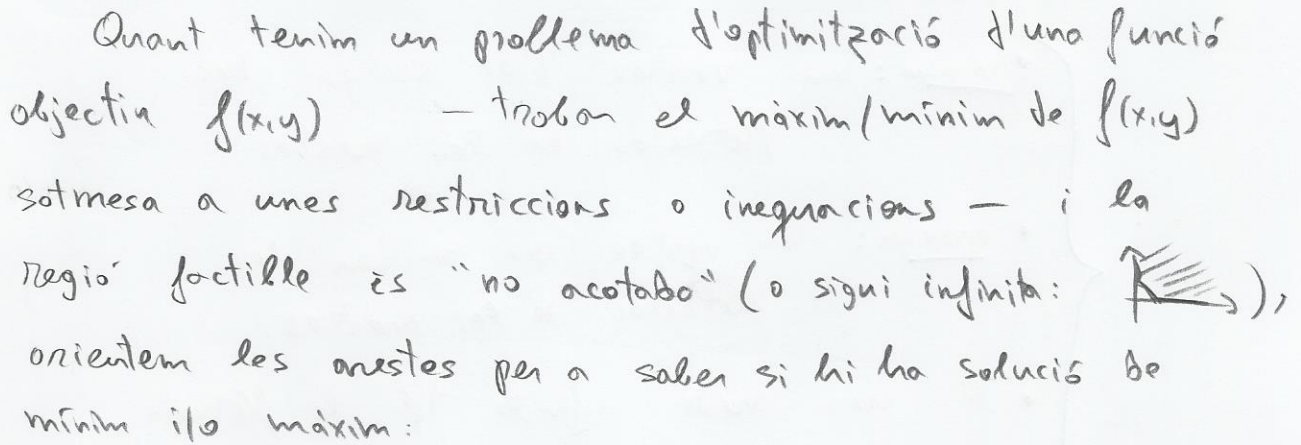 Quant tenim un problema d'optimització d'una funció
objectiu f(x,y) — trobar el màxim/mínim de f(x,y)
sotmesa a unes restriccions o inequacions — i la
regió factible és "no acotada" (o sigui infinita: ),
orientem les arestes per a saber si hi ha solució de
mínim i/o màxim: